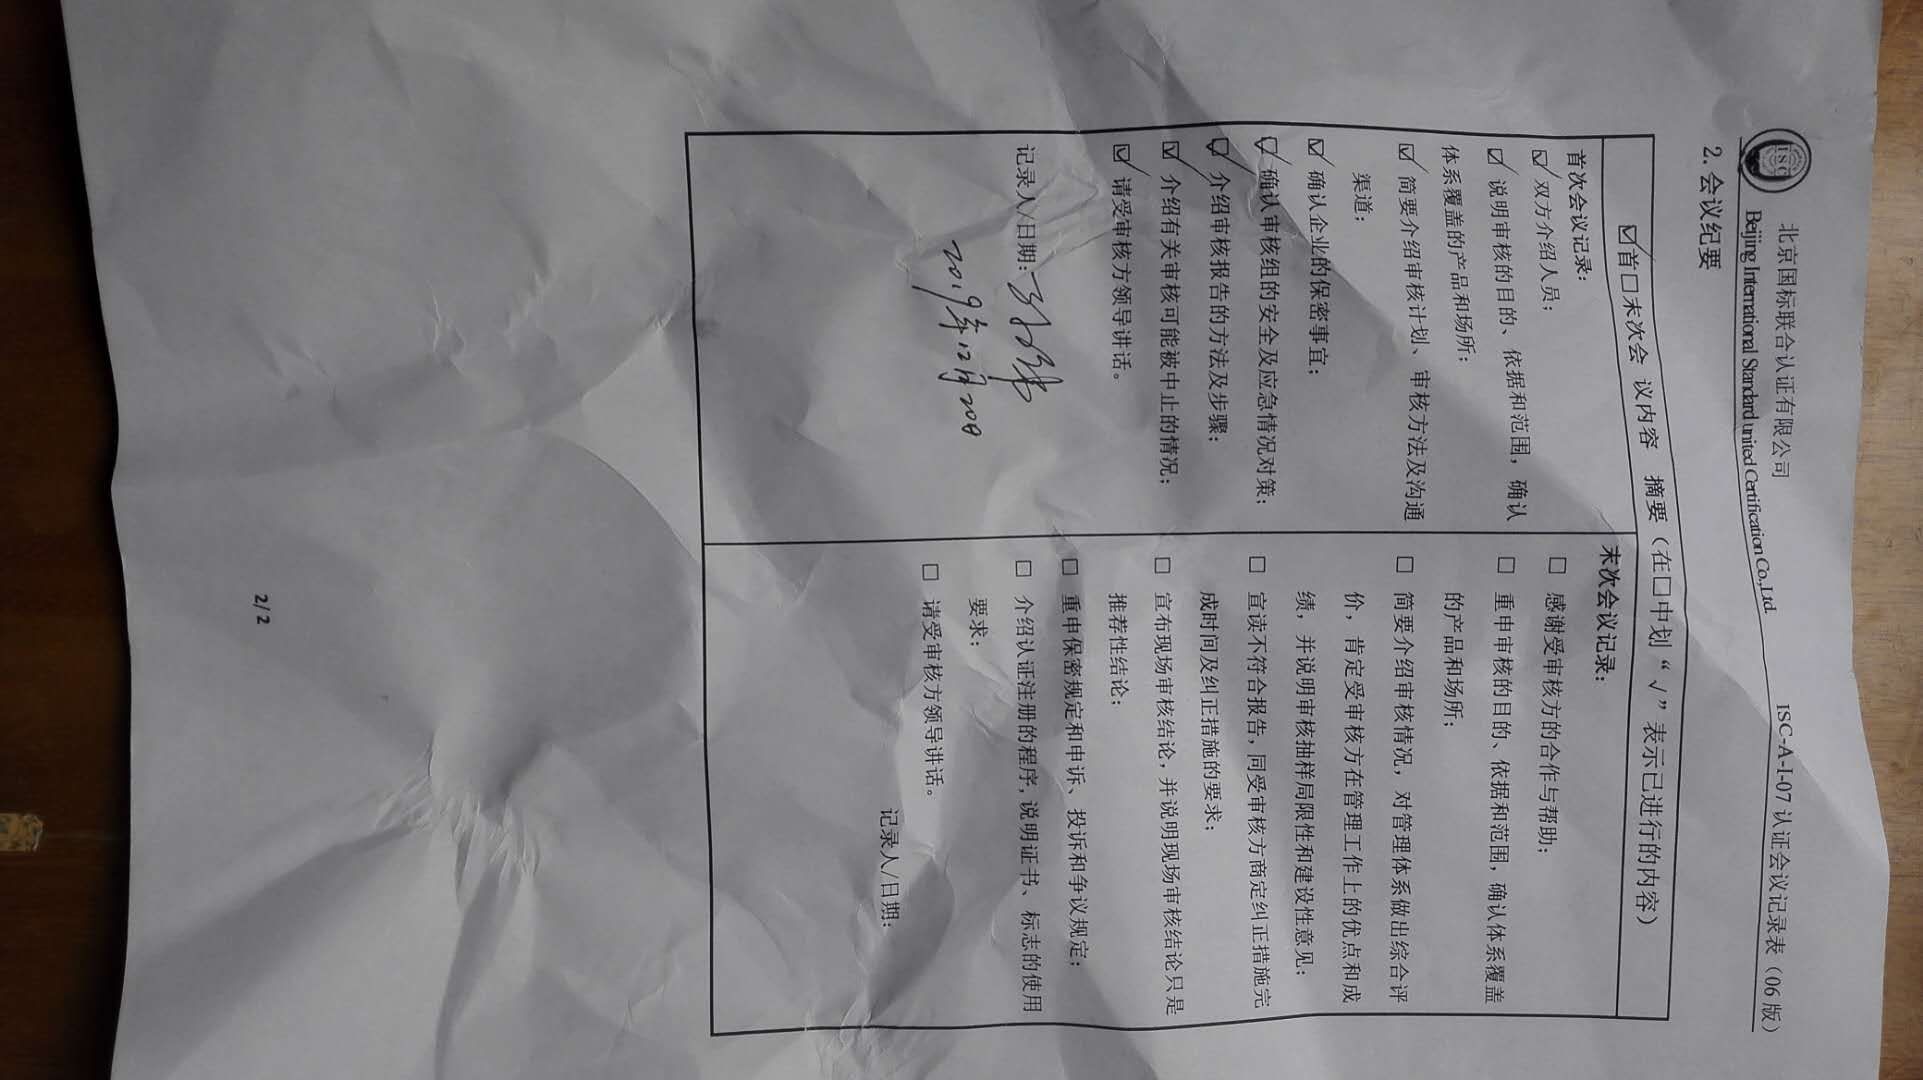 ISC
北京国标联合认证有限公司 ISC-A-I-07 认证会议记录表（06 版）
Beijing International Standard united Certification Co.,Ltd.
2. 会议纪要
☑首□末次会 议内容 摘要（在□中划“√”表示已进行的内容）
首次会议记录：
☑ 双方介绍人员；
☑ 说明审核的目的、依据和范围，确认
体系覆盖的产品和场所；
☑ 简要介绍审核计划、审核方法及沟通
渠道；
☑ 确认企业的保密事宜；
☑ 确认审核组的安全及应急情况对策；
☑ 介绍审核报告的方法及步骤；
☑ 介绍有关审核可能被中止的情况；
☑ 请受审核方领导讲话。
记录人/日期：
2019年12月20日
末次会议记录：
□ 感谢受审核方的合作与帮助；
□ 重申审核的目的、依据和范围，确认体系覆盖
的产品和场所；
□ 简要介绍审核情况，对管理体系做出综合评
价，肯定受审核方在管理工作上的优点和成
绩，并说明审核抽样局限性和建设性意见；
□ 宣读不符合报告，同受审核方商定纠正措施完
成时间及纠正措施的要求；
□ 宣布现场审核结论，并说明现场审核结论只是
推荐性结论；
□ 重申保密规定和申诉、投诉和争议规定；
□ 介绍认证注册的程序，说明证书、标志的使用
要求；
□ 请受审核方领导讲话。
记录人/日期：
2/2